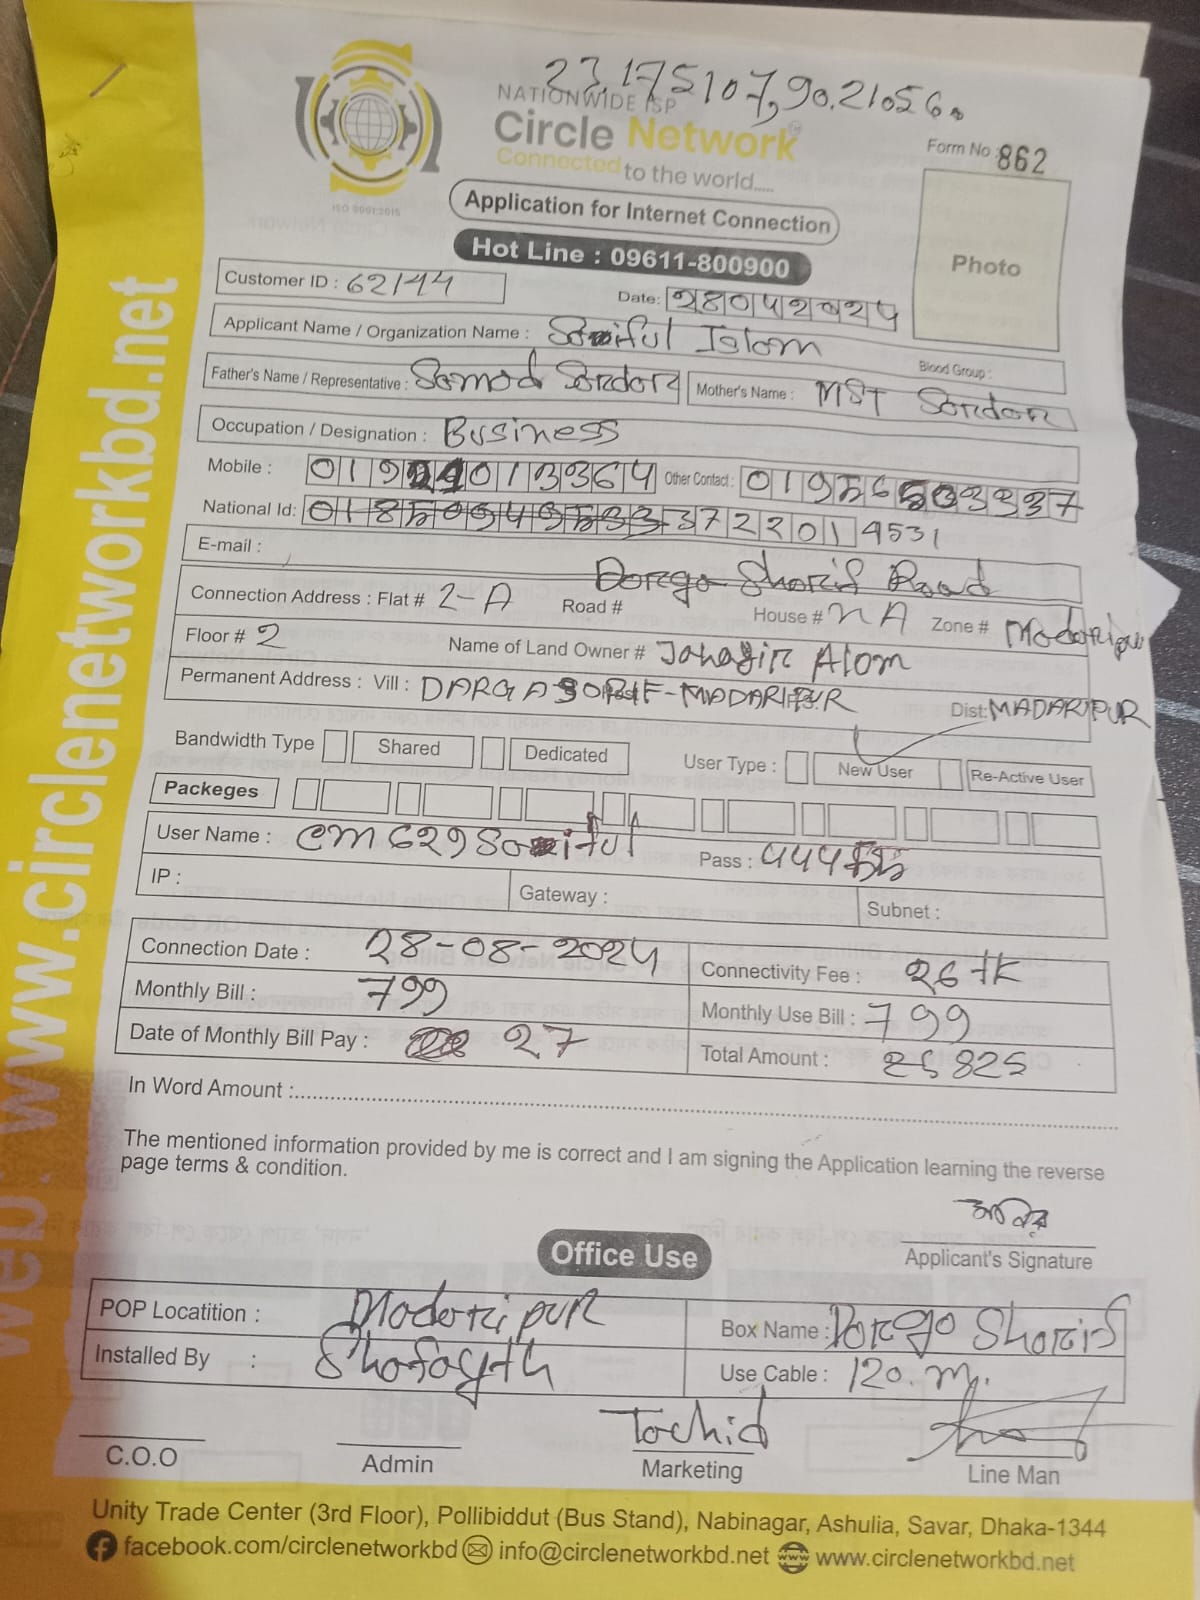 23.175107,90.21056.
NATIONWIDE ISP
Circle Network
Connected to the world.....
ISO 9001:2015
Form No : 862
Application for Internet Connection
Hot Line : 09611-800900
Photo
Customer ID : 62144
Date:
Applicant Name / Organization Name : Soriful Islom
Blood Group :
Father's Name / Representative : Somod Sordor Mother's Name : MST Sordor
Occupation / Designation : Business
Mobile : Other Contact :
National Id: 3722014531
E-mail :
Dorgo Shorif Road
Connection Address : Flat # 2-A Road # House # NA Zone # Modoripur
Floor # 2 Name of Land Owner # Jahagir Alom
Permanent Address : Vill : DARGA MADARIPUR Dist: MADARIPUR
Bandwidth Type Shared Dedicated User Type : New User Re-Active User
Packeges
User Name : cm629Soriful Pass :
IP : Gateway : Subnet :
Connection Date : 28-08-2024 Connectivity Fee : 26 tk
Monthly Bill : 799 Monthly Use Bill : 799
Date of Monthly Bill Pay : 27 Total Amount : 825
In Word Amount :
The mentioned information provided by me is correct and I am signing the Application learning the reverse
page terms & condition.
Applicant's Signature
Office Use
POP Locatition : Modoripur Box Name : Dorgo Shorif
Installed By : Use Cable : 120.m.
Tochid
C.O.O Admin Marketing Line Man
Unity Trade Center (3rd Floor), Pollibiddut (Bus Stand), Nabinagar, Ashulia, Savar, Dhaka-1344
facebook.com/circlenetworkbd info@circlenetworkbd.net www.circlenetworkbd.net
web: www.circlenetworkbd.net